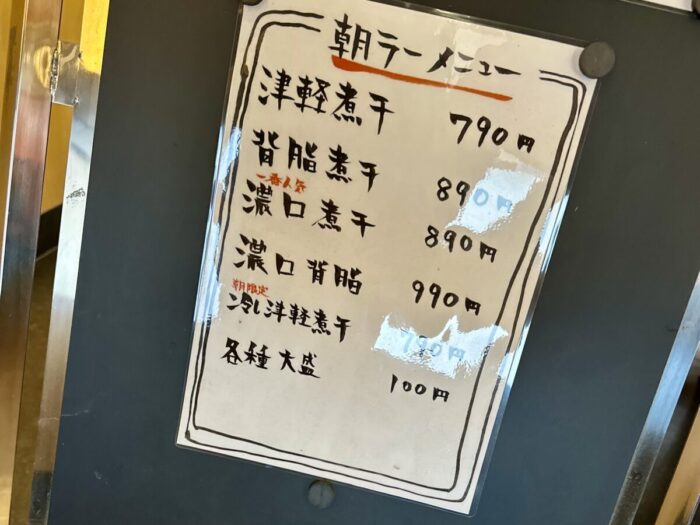 朝ラーメニュー
津軽煮干 790円
背脂煮干 890円
一番人気
濃口煮干 890円
濃口背脂 990円
朝限定
冷し津軽煮干 790円
各種大盛 100円